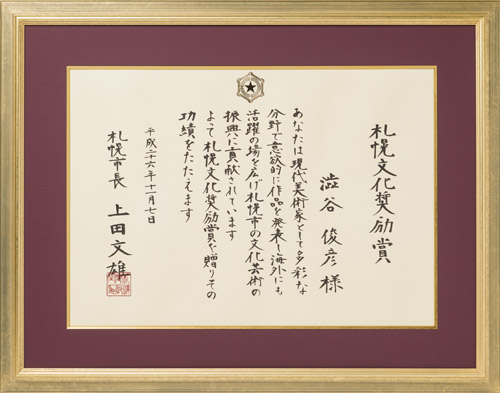 札幌文化奨励賞
澁谷俊彦様
あなたは現代美術家として多彩な
分野で意欲的に作品を発表し海外にも
活躍の場を広げ札幌市の文化芸術の
振興に貢献されています
よって札幌文化奨励賞を贈りその
功績をたたえます
平成二十六年十一月七日
札幌市長 上田文雄